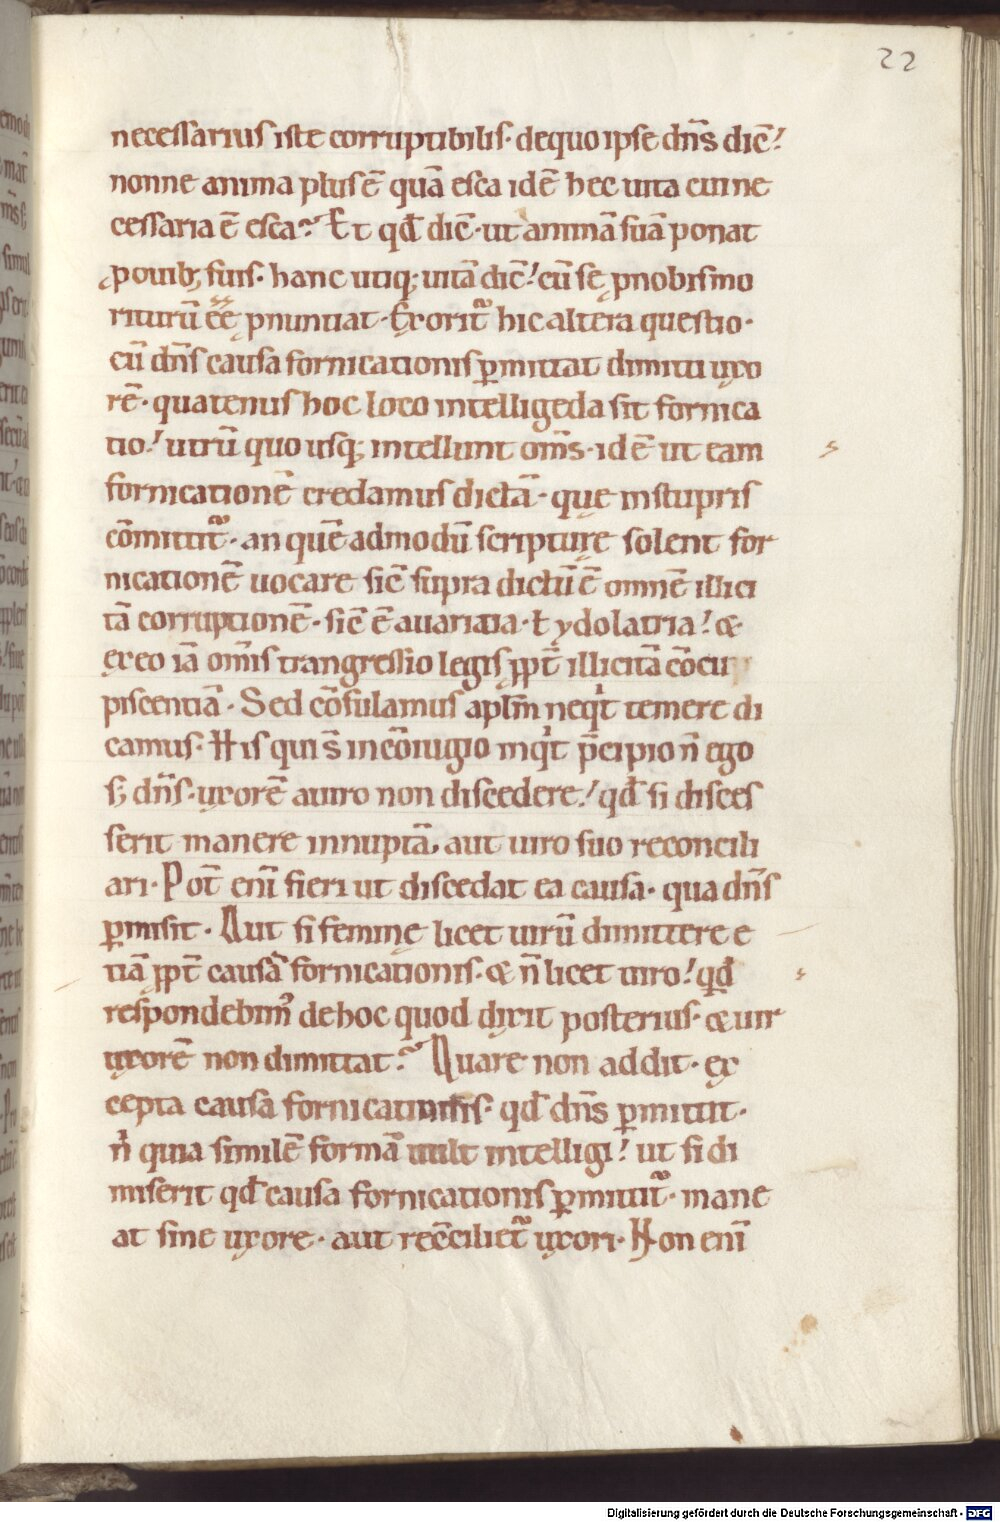 22
necessarius iste corruptibilis· dequo ipse dn̄s dic̄!
nonne anima plus ē quā esca id ē hec uita cui ne
cessaria ē esca? Et qđ dic̄· ut animā suā ponat
ꝓ ouibꝫ suis· hanc utiqꝫ uitā dic̄! cū se ꝓ nobis mo
riturū eē̄ ꝓnuntiat· Exorit᷑ hic altera questio·
cū dn̄s causa fornicationis ꝑmittat dimitti uxo
rē· quatenus hoc loco intelligeda sit fornica
tio! utrū quo usqꝫ intellunt om̄s· id ē ut eam
fornicationē credamus dictā· que in stupris
cōmittit᷑· an quē admodū scripturę solent for
nicationē uocare sic̄ supra dictū ē omnē illici
tā corruptionē· sic̄ ē auaritia· ł ydolatria! &
ex eo iā om̄is trangressio legis ꝓpt̄ illicitā cōcu
piscentiā· Sed cōsulamus apl̄m ne qͥt temere di
camus· His qui s̄ in cōiugio inqͥt p̄cipio n̄ ego
sꝫ dn̄s· uxorē a uiro non discedere! qđ si disces
serit manere innuptā, aut uiro suo reconcili
ari· Pot̄ enī fieri ut discedat ea causa· qua dn̄s
ꝑmisit· Aut si feminę licet uirū dimittere e
tiā ꝓpt̄ causā fornicationis· & n̄ licet uiro! qđ
respondebim᷒ de hoc quod dixit posterius· & uir
uxorē non dimittat? Quare non addit· ex
cepta causa fornicationis· qđ dn̄s ꝑmittit·
nͥ quia similē formā uult intelligi! ut si di
miserit qđ causa fornicationis ꝑmittit᷑· mane
at sine uxore· aut rec̄ciliet᷑ uxori· Non enī
Digitalisierung gefördert durch die Deutsche Forschungsgemeinschaft - DFG